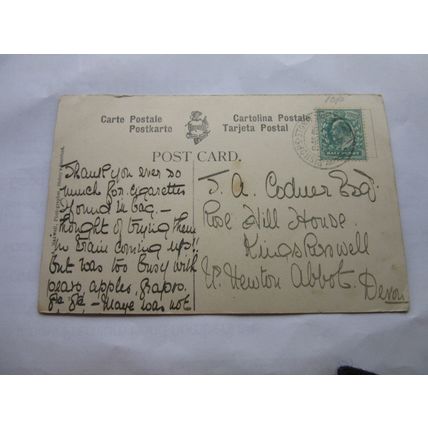 Carte Postale
Postkarte
Cartolina Postale
Tarjeta Postal
POST CARD.
Thank you ever so
much for cigarettes
found in bag —
thought of trying them
in train coming up!!
but was too busy with
pears, apples,
— Maye was not
T. A. Codner Esq.
Rose Hill House
Kingskerswell
Nr. Newton Abbot.
Devon